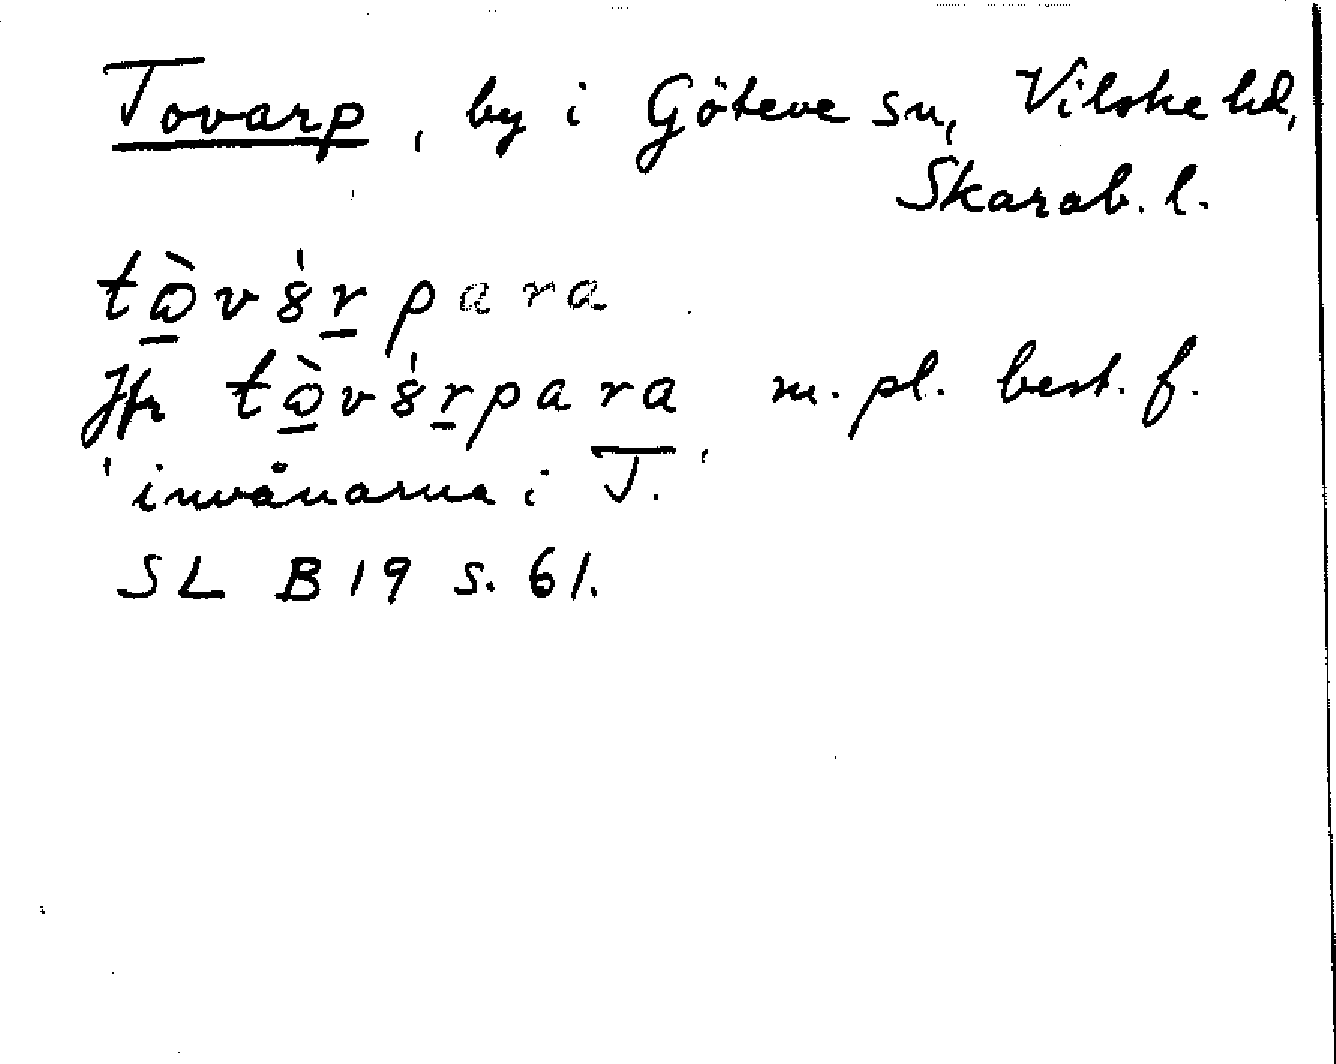 Tovarp, by i Göteve sn, Vilske hd,
Skarab. l.
tὼ̲vs̍r̲para
Jfr tὼ̲vs̍r̲para m. pl. best. f.
'invånarna i T.'
SL B19 s. 61.